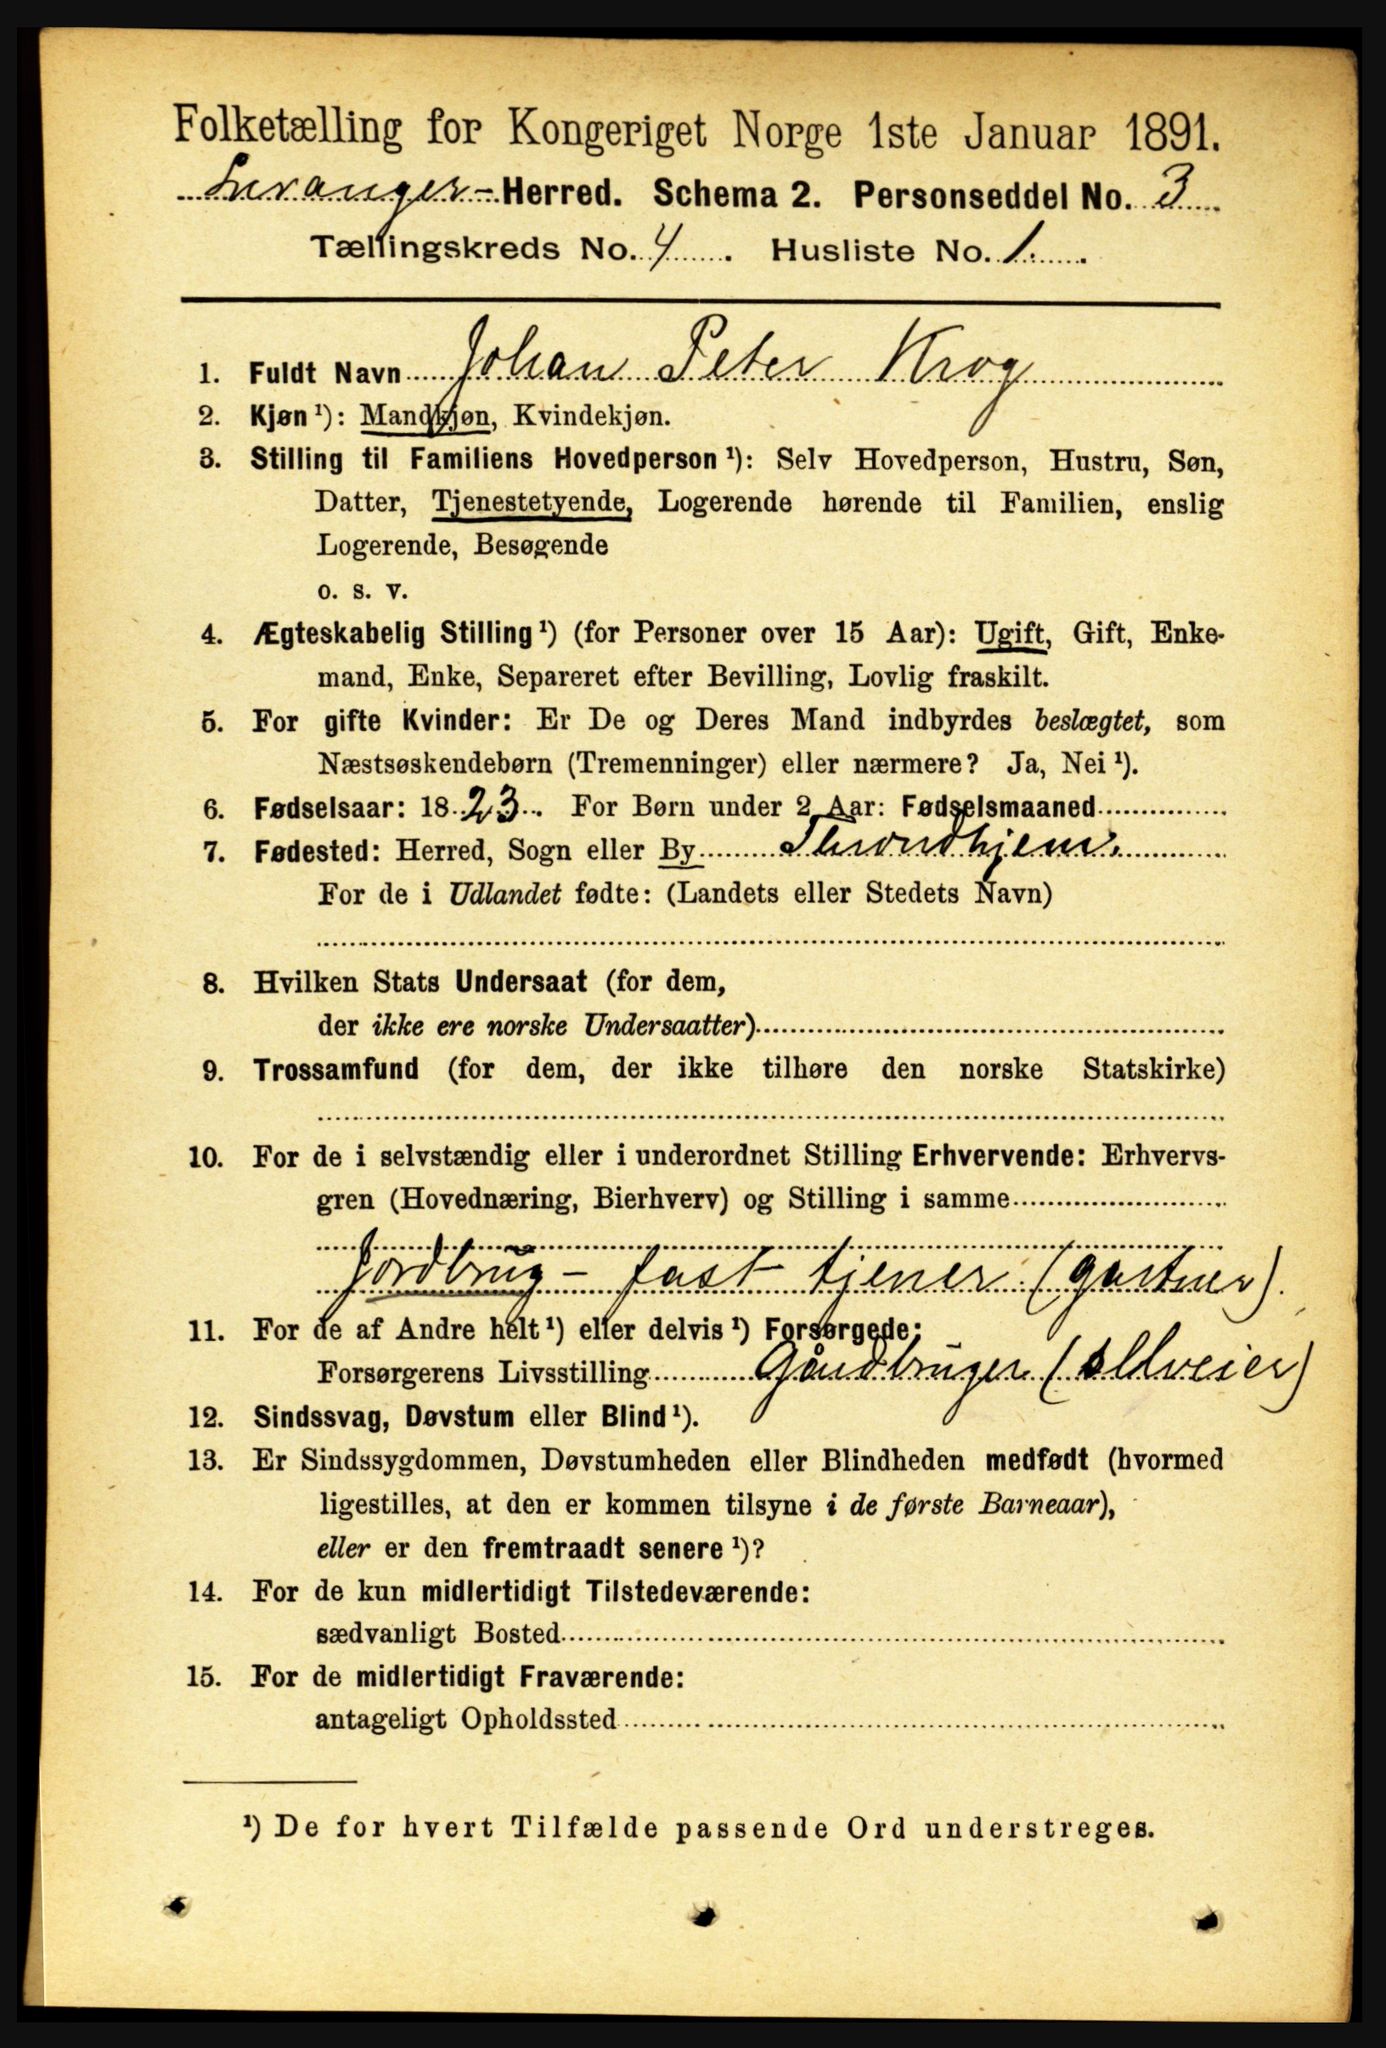 Folketælling for Kongeriget Norge 1ste Januar 1891.
Herred. Schema 2. Personseddel No. 3
Tællingskreds No. 4. Husliste No. 1.
1. Fuldt Navn Johan Peter Krog
2. Kjøn ¹): Mandkjøn, Kvindekjøn.
3. Stilling til Familiens Hovedperson ¹): Selv Hovedperson, Hustru, Søn,
Datter, Tjenestetyende, Logerende hørende til Familien, enslig
Logerende, Besøgende
o. s. v.
4. Ægteskabelig Stilling ¹) (for Personer over 15 Aar): Ugift, Gift, Enke-
mand, Enke, Separeret efter Bevilling, Lovlig fraskilt.
5. For gifte Kvinder: Er De og Deres Mand indbyrdes beslægtet, som
Næstsøskendebørn (Tremenninger) eller nærmere? Ja, Nei ¹).
6. Fødselsaar: 1823. For Børn under 2 Aar: Fødselsmaaned
7. Fødested: Herred, Sogn eller By Throndhjem.
For de i Udlandet fødte: (Landets eller Stedets Navn)
8. Hvilken Stats Undersaat (for dem,
der ikke ere norske Undersaatter)
9. Trossamfund (for dem, der ikke tilhøre den norske Statskirke)
10. For de i selvstændig eller i underordnet Stilling Erhvervende: Erhvervs-
gren (Hovednæring, Bierhverv) og Stilling i samme
Jordbrug - fast tjener (gartner).
11. For de af Andre helt ¹) eller delvis ¹) Forsørgede:
Forsørgerens Livsstilling Gårdbruger (selveier)
12. Sindssvag, Døvstum eller Blind ¹).
13. Er Sindssygdommen, Døvstumheden eller Blindheden medfødt (hvormed
ligestilles, at den er kommen tilsyne i de første Barneaar),
eller er den fremtraadt senere ¹)?
14. For de kun midlertidigt Tilstedeværende:
sædvanligt Bosted
15. For de midlertidigt Fraværende:
antageligt Opholdssted
¹) De for hvert Tilfælde passende Ord understreges.